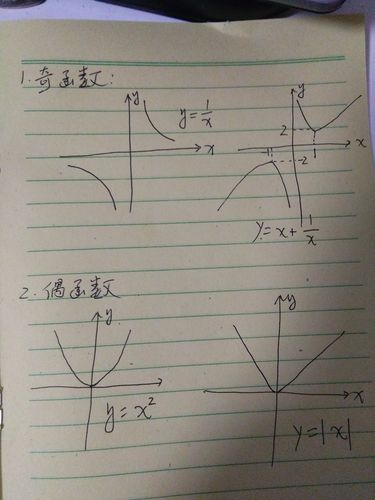 1. 奇函数:
y
y = 1/x
x
y
2
1
x
-1
-2
y = x + 1/x
2. 偶函数
y
y = x²
y
x
y = |x|